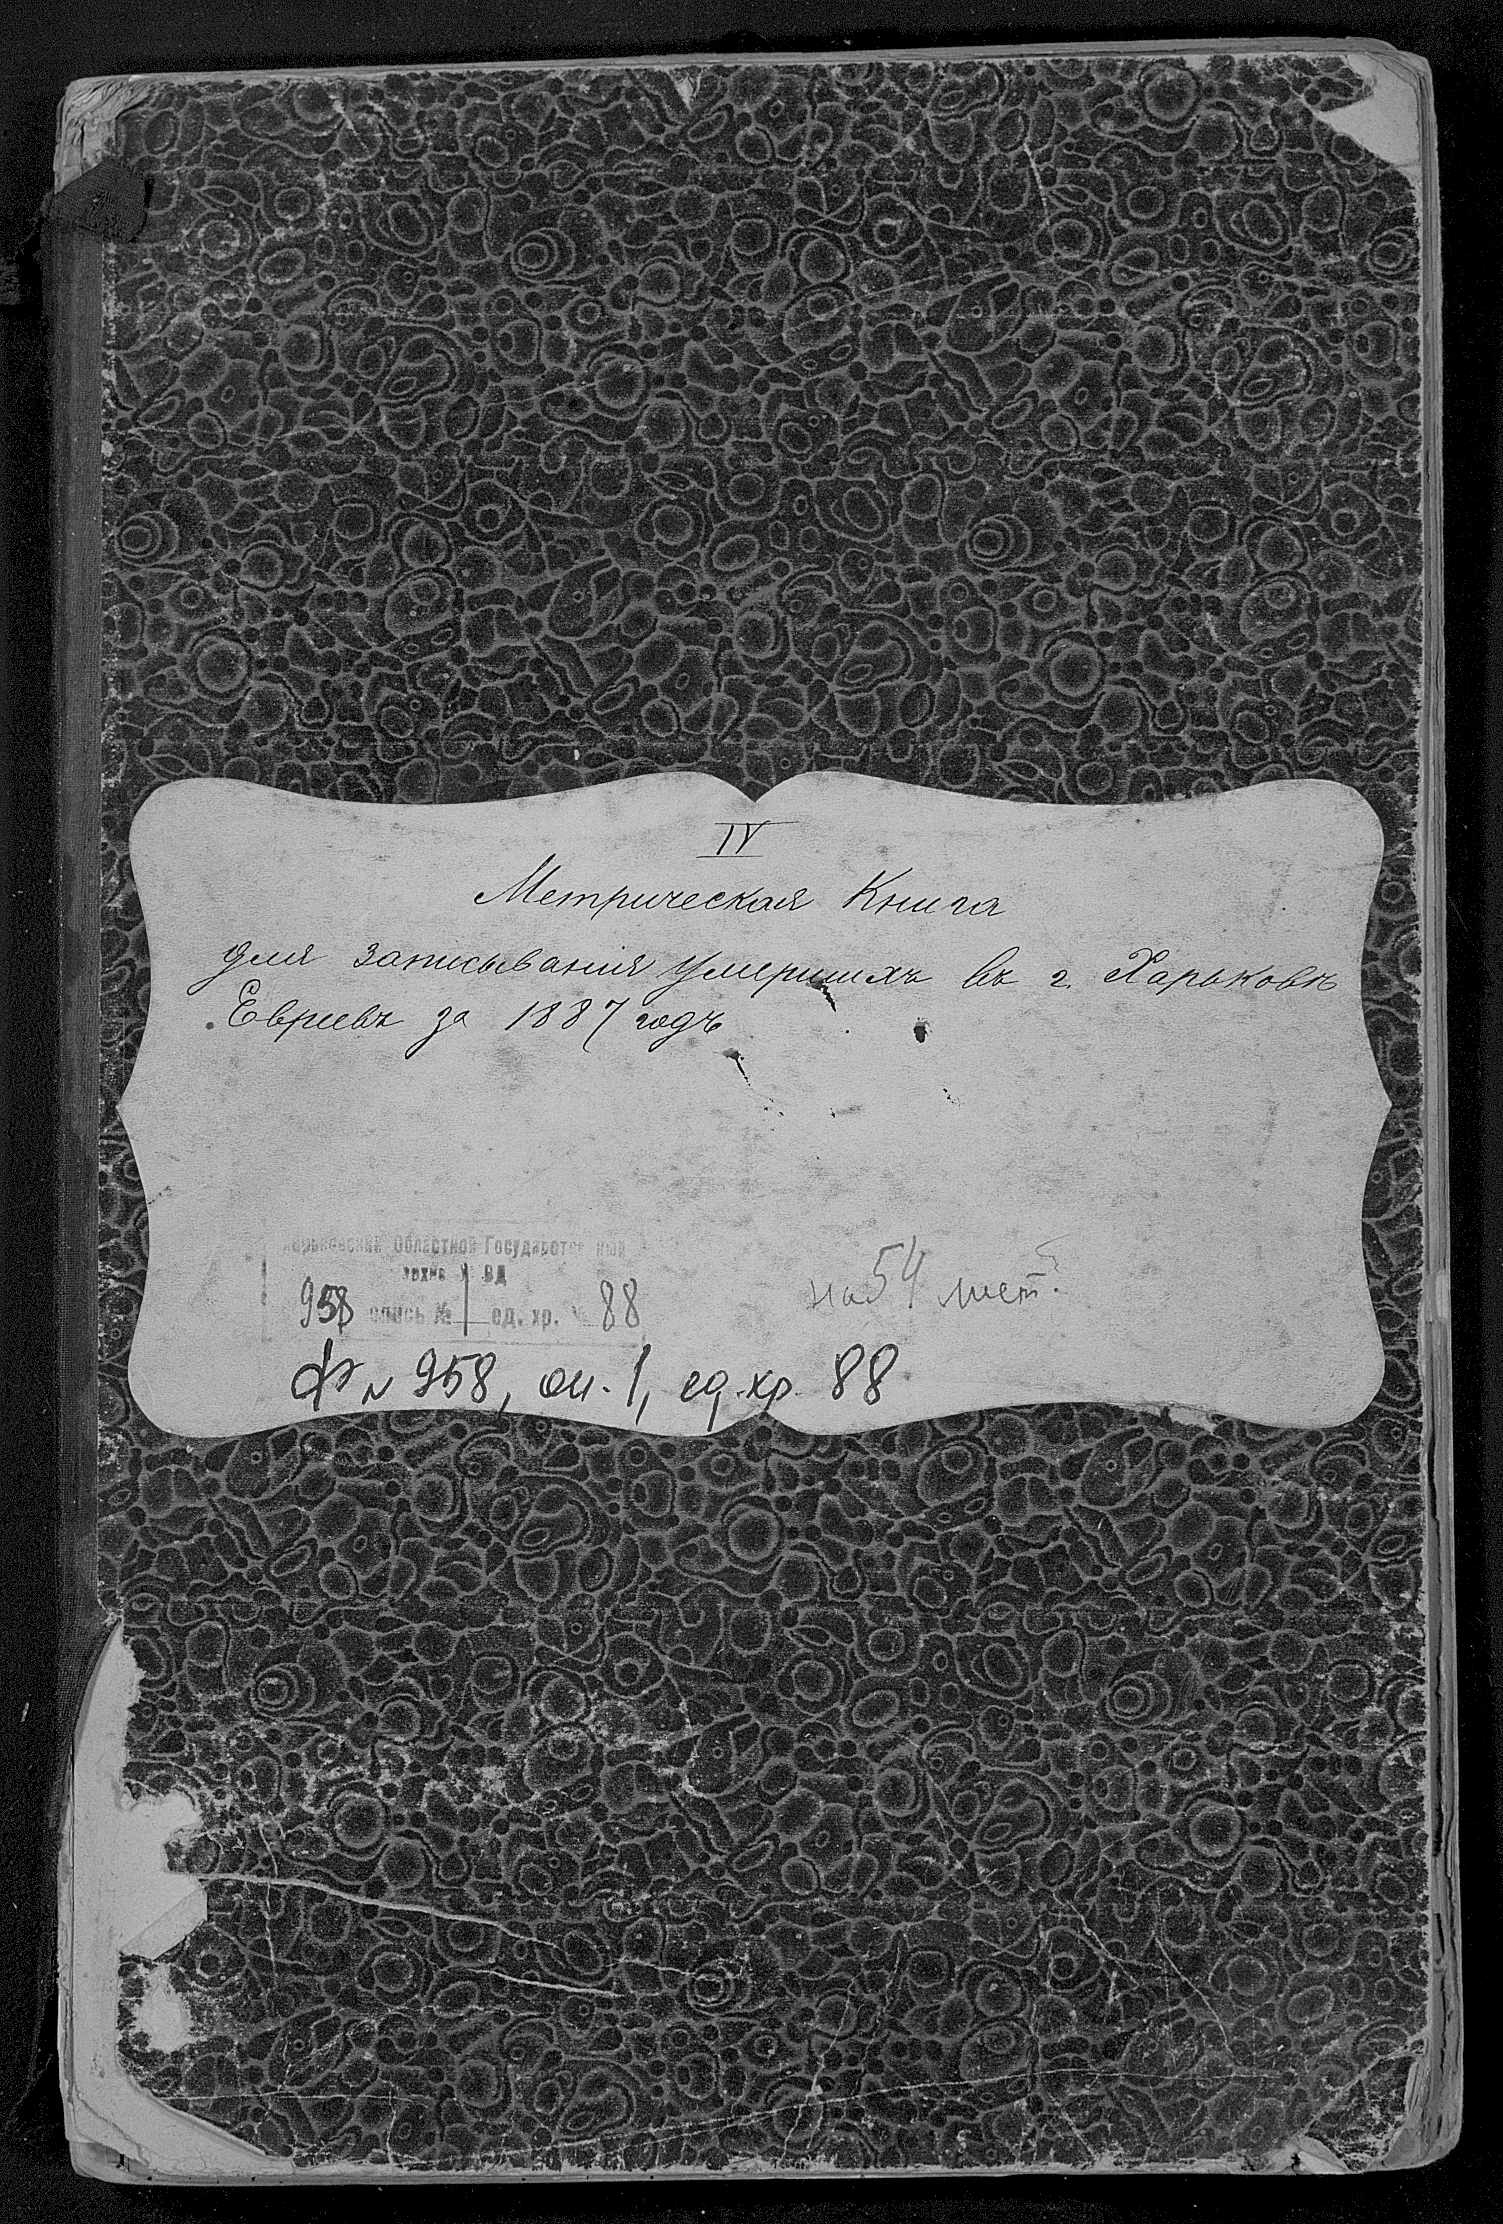 IV
Метрическая Книга
для записыванія умершихъ въ г. Харьковѣ
Евреевъ за 1887 годъ
Харьковский Областной Государствен ный
архив У ВД
958 опись № 1 ед. хр. № 88
на 54 лист.
Ф N 958, оп. 1, ед. хр. 88